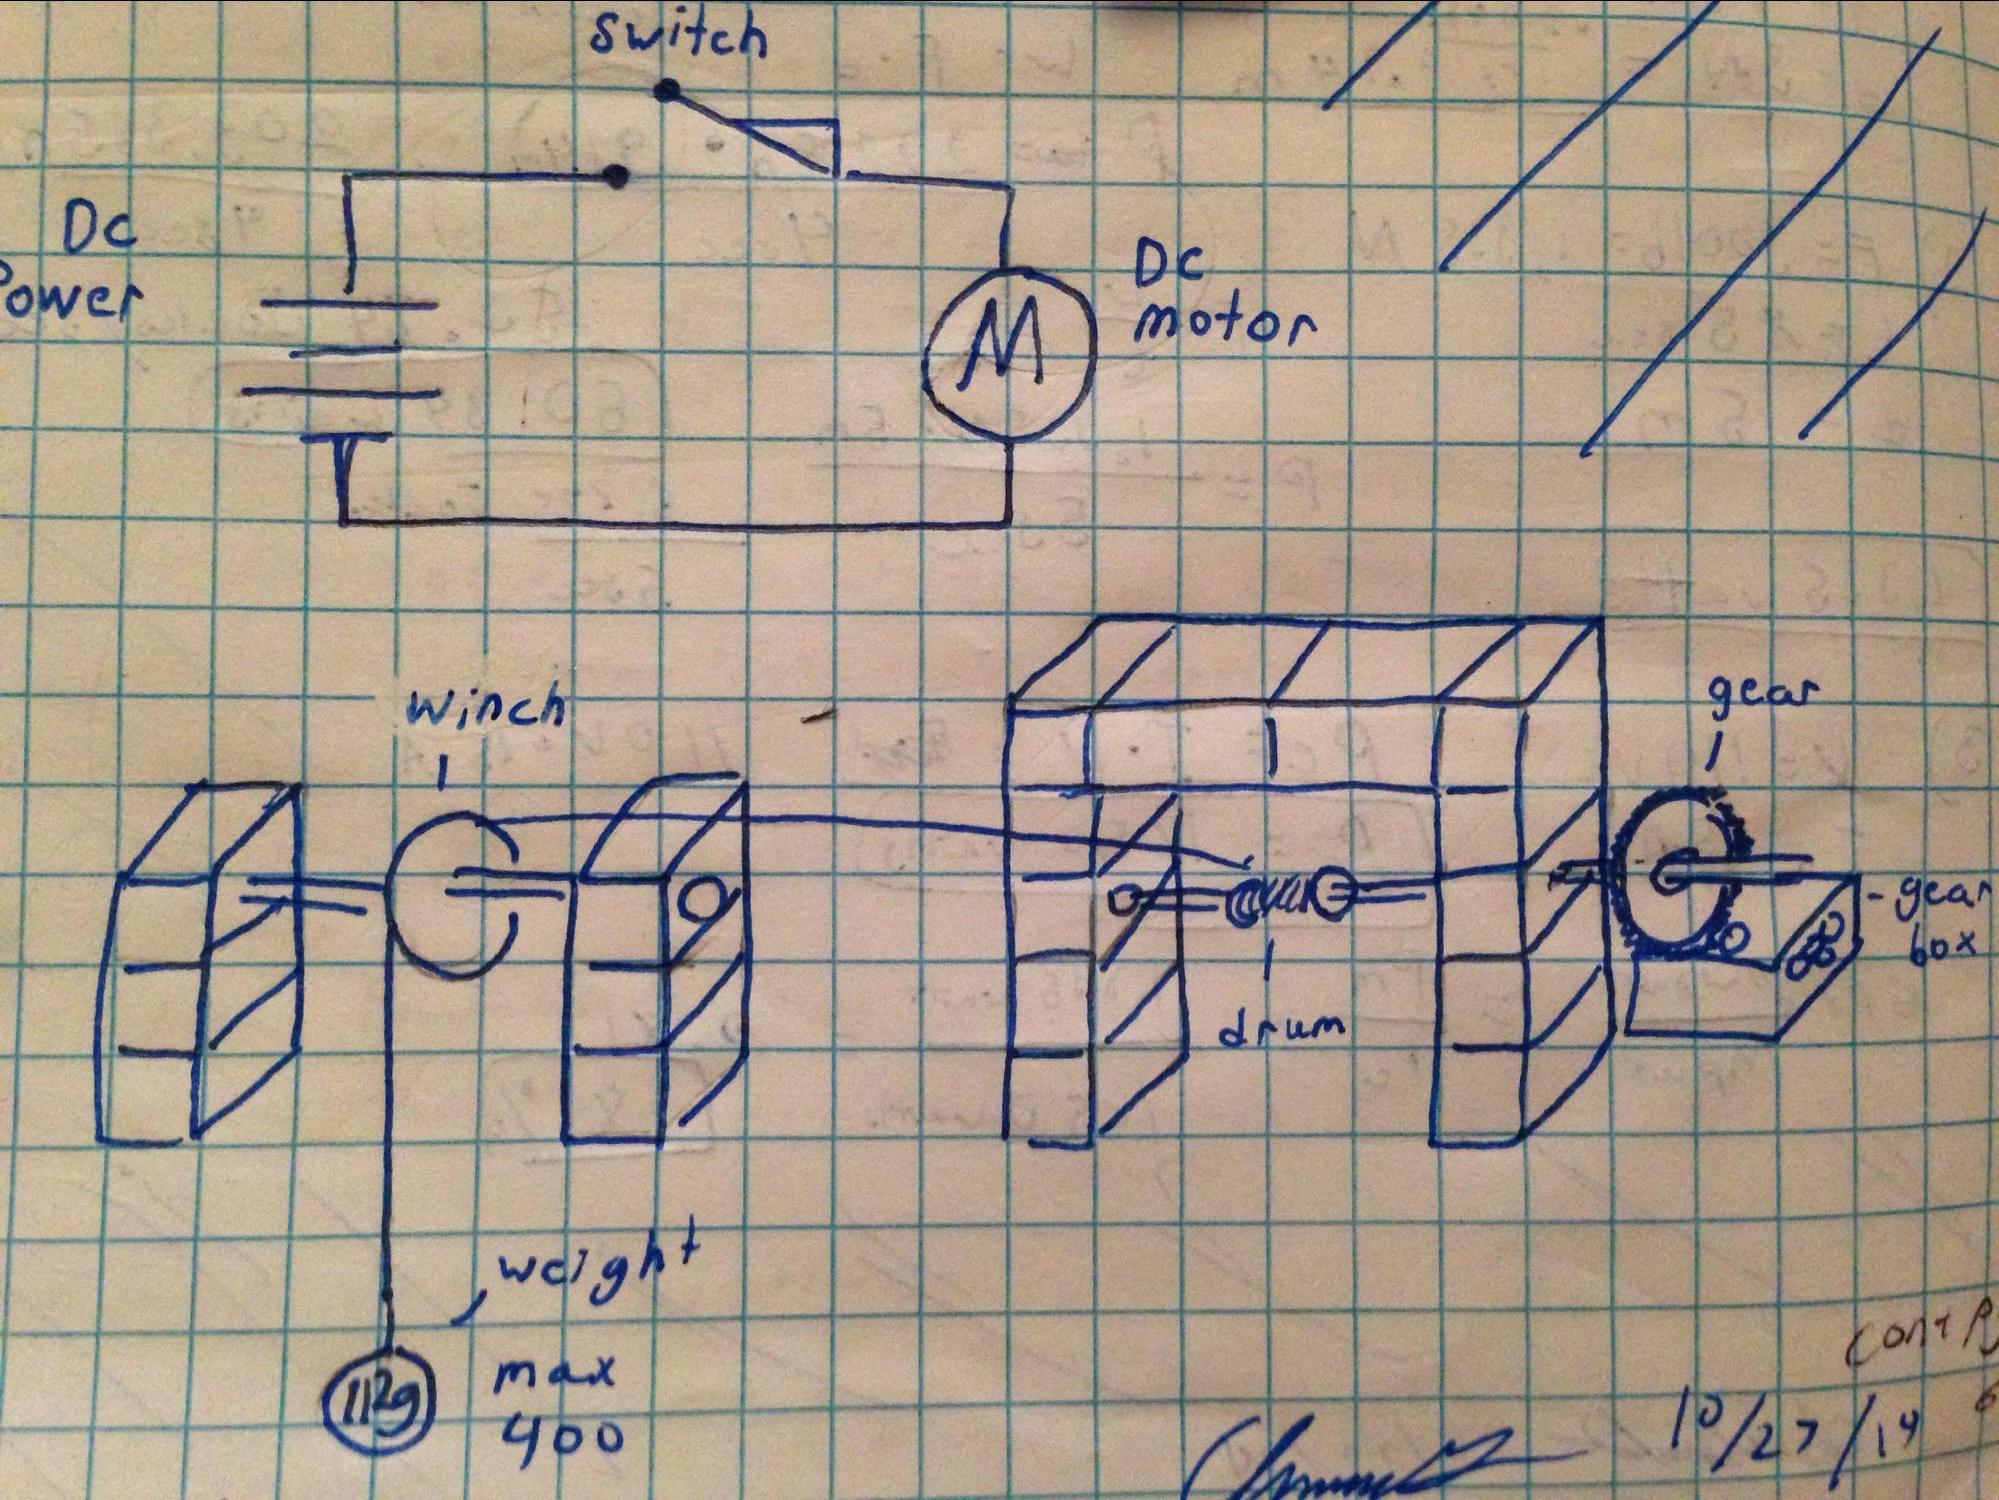 Switch
Dc
Power
M
Dc
motor
winch
gear
- gear
box
drum
weight
max
400
112g
cont
10/27/14